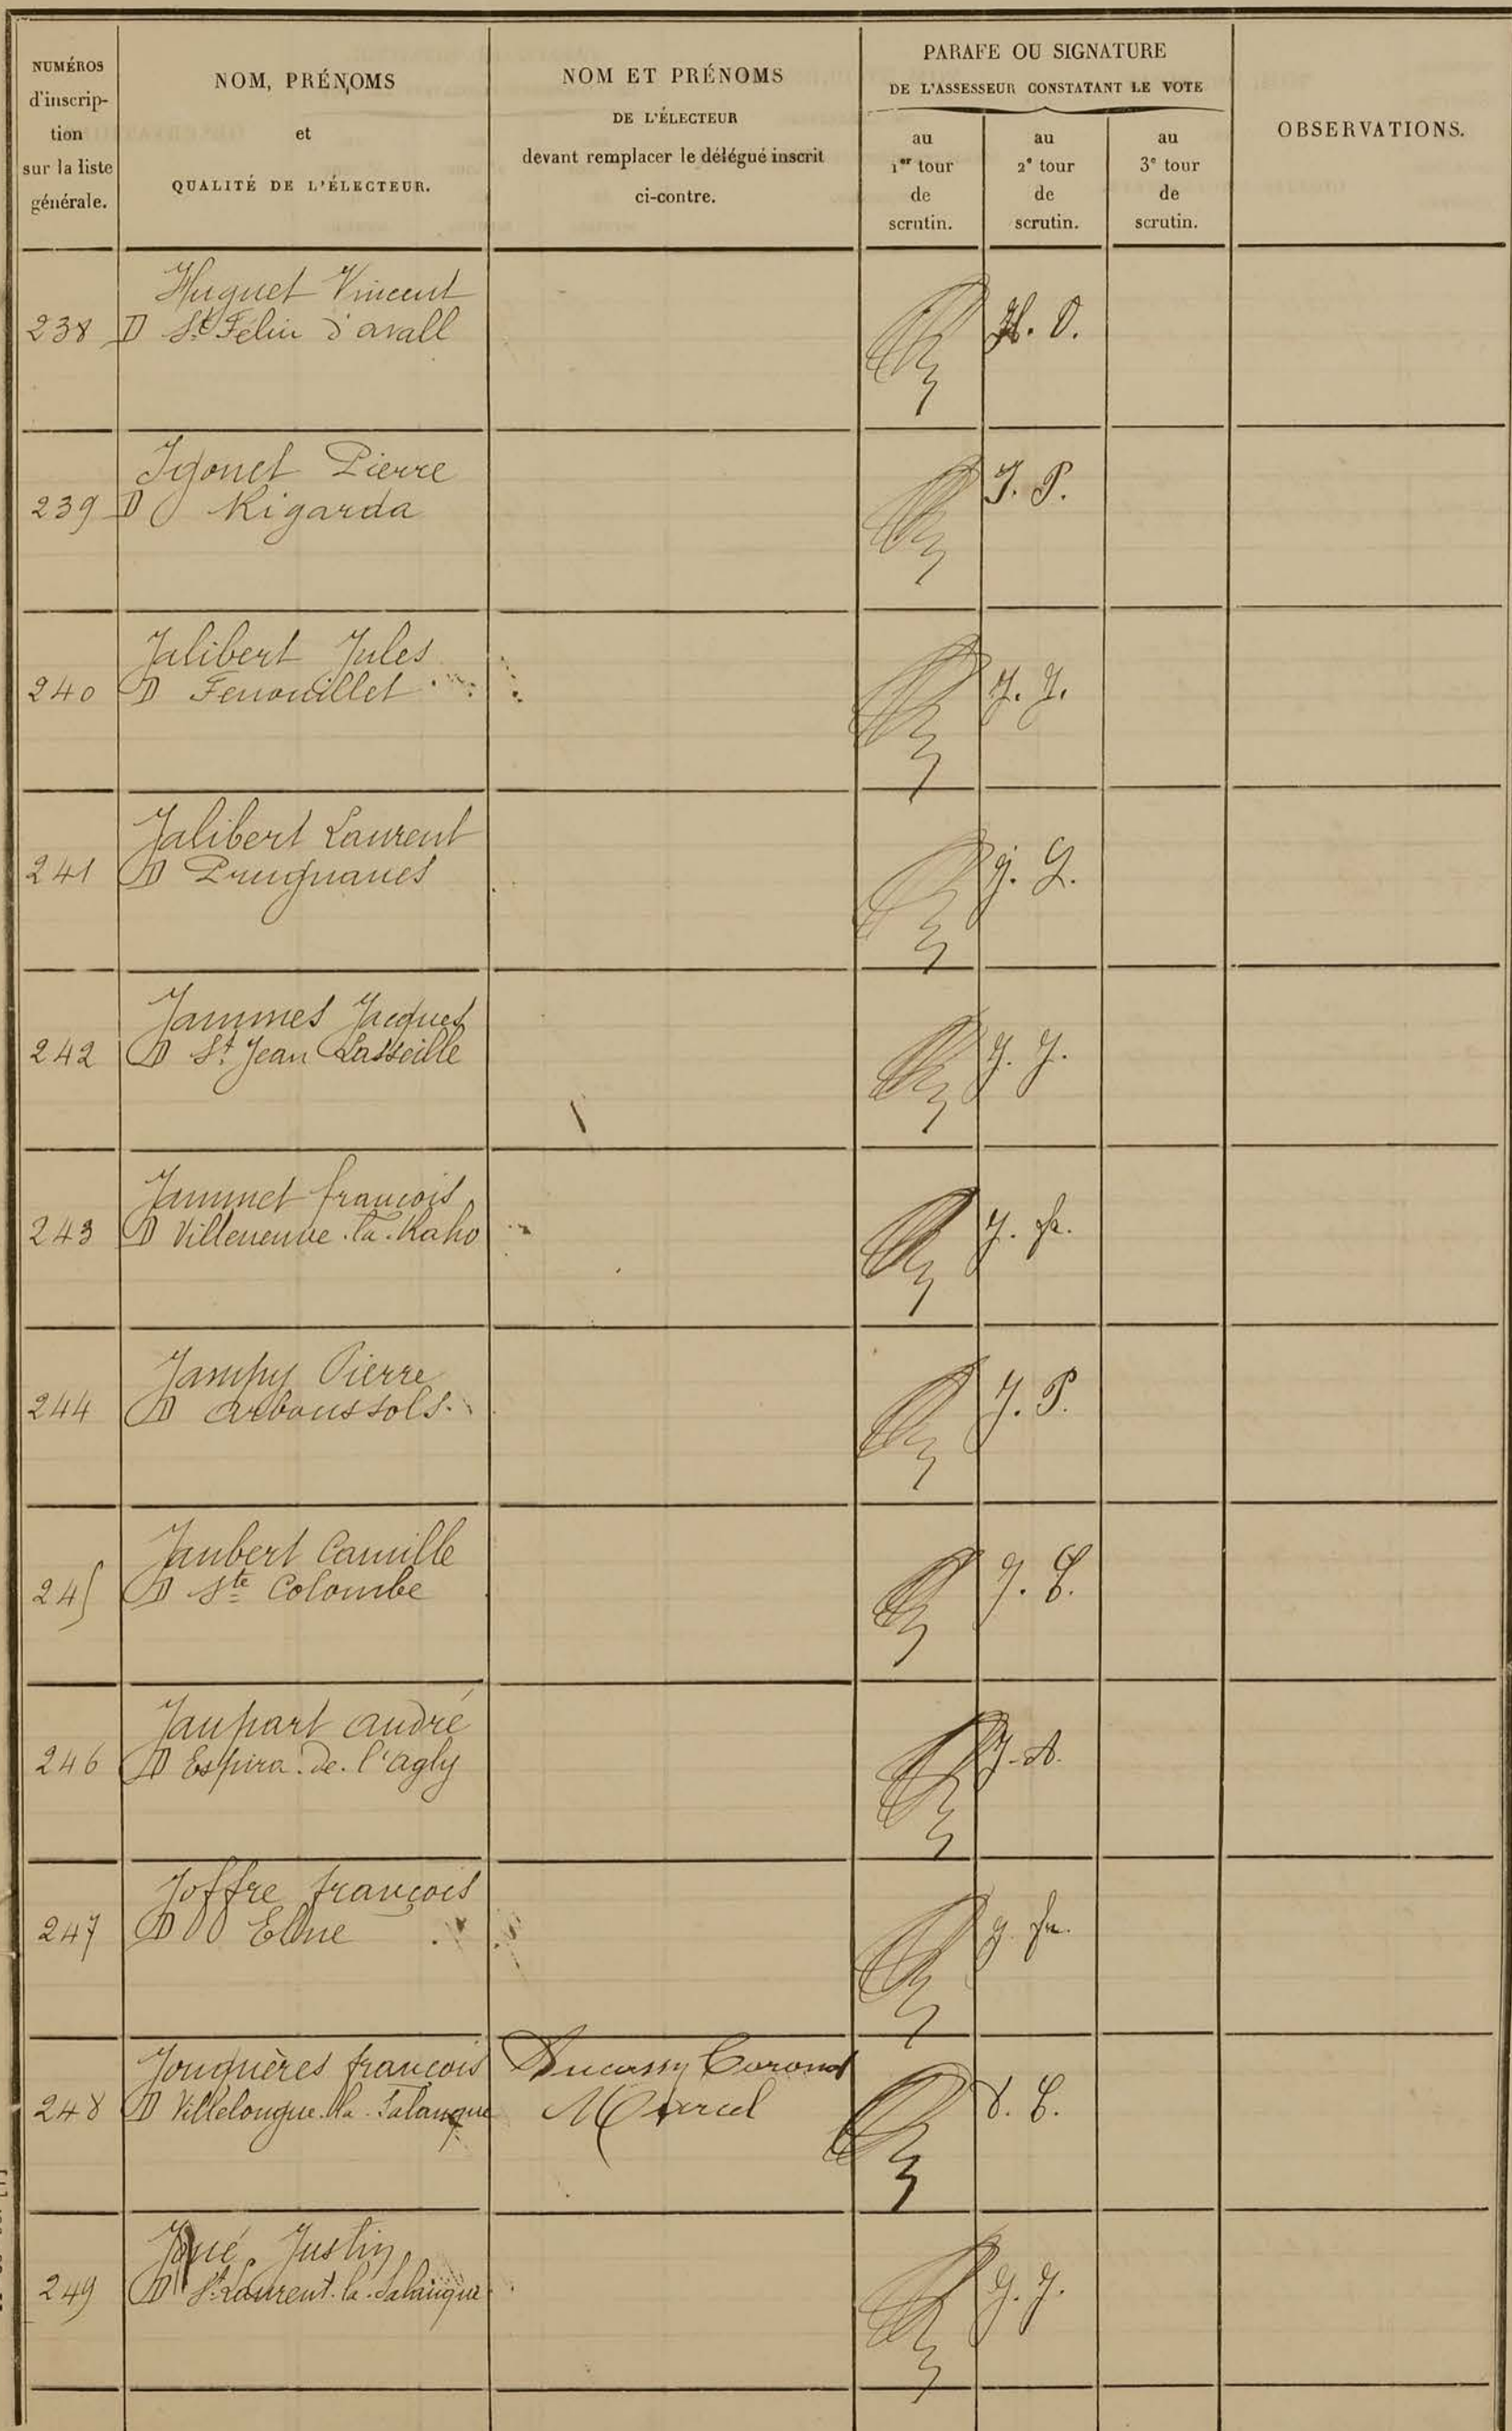 NUMÉROS
d'inscrip-
tion
sur la liste
générale.
NOM, PRÉNOMS
et
QUALITÉ DE L'ÉLECTEUR.
NOM ET PRÉNOMS
DE L'ÉLECTEUR
devant remplacer le délégué inscrit
ci-contre.
PARAFE OU SIGNATURE
DE L'ASSESSEUR CONSTATANT LE VOTE
au
1er tour
de
scrutin.
au
2e tour
de
scrutin.
au
3e tour
de
scrutin.
OBSERVATIONS.
Huguet Vincent
238 D St Felin d'avall
H. V.
Igonet Pierre
239 D Rigarda
J. P.
Jalibert Jules
240 D Fenouillet
J. J.
Jalibert Laurent
241 D Prugnanes
j. L.
Jammes Jacques
242 D St Jean Lasseille
J. J.
Jammet françois
243 D Villeneuve-la-Raho
J. fr.
Jampy Pierre
244 D arboussols.
J. P.
Jaubert Camille
245 D Ste Colombe
J. C.
Jaupart andré
246 D Espira-de-l'agly
J. A.
Joffre françois
247 D Elne
J. fr.
Jouquères françois Marcel
248 D Villelongue-la-Salanque
D. C.
Justin
249 D St Laurent-la-Salanque
J. J.